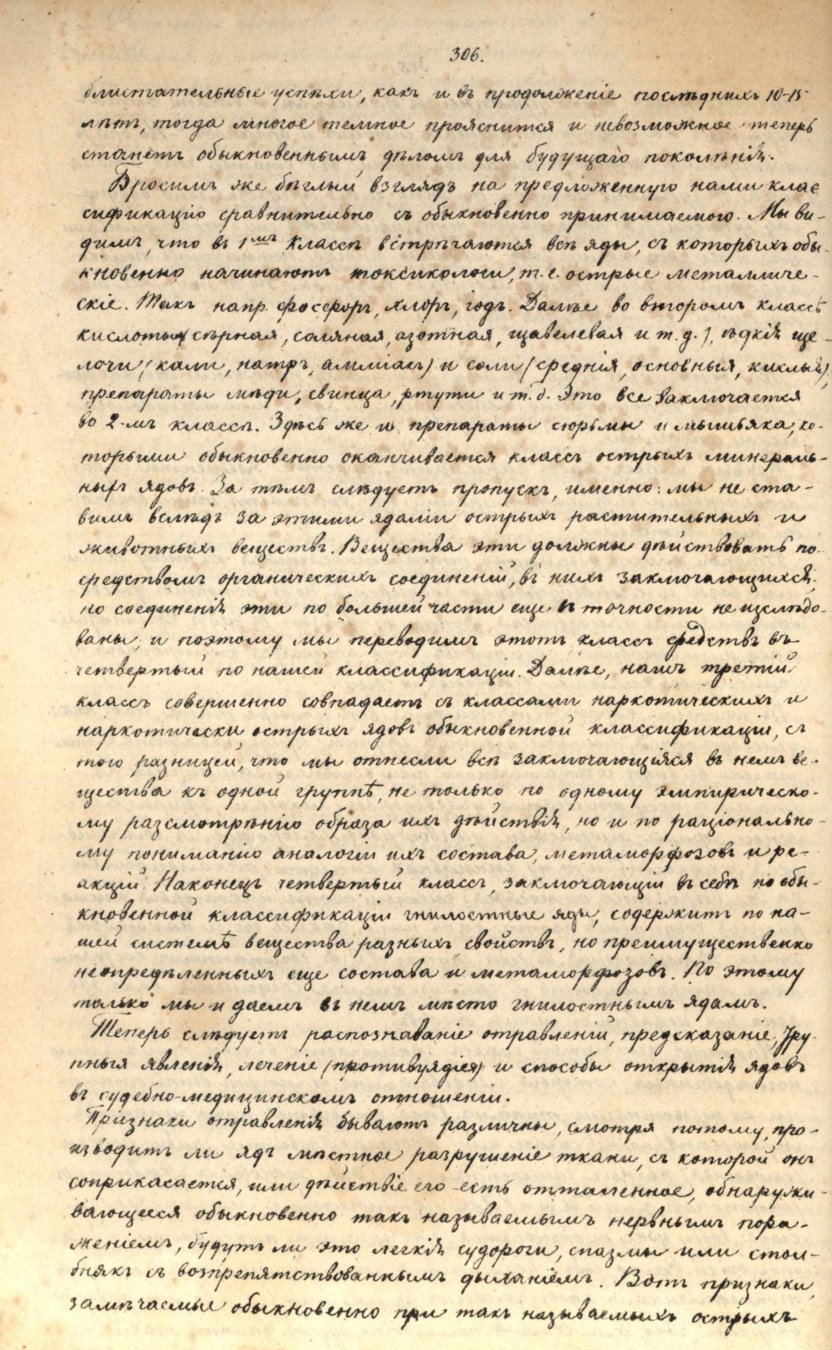 306.
блистательные успѣхи, какъ и въ продолженіе послѣднихъ 10-15
лѣтъ, тогда многое темное прояснится и невозможное теперь
станетъ обыкновеннымъ дѣломъ для будущаго поколѣнія.
Бросимъ же бѣглый взглядъ на предложенную нами клас
сификацію сравнительно съ обыкновенно принимаемою. Мы ви-
димъ, что въ 1мъ классѣ встрѣчаются всѣ яды, съ которыхъ обы-
кновенно начинаютъ токсикологи, т. е. острые металличе-
скіе. Такъ напр. фосфоръ, хлоръ, іодъ. Далѣе во второмъ классѣ
кислоты (сѣрная, соляная, азотная, щавелевая и т. д.), ѣдкія ще-
лочи, (кали, натръ, амміакъ) и соли (среднія, основныя, кислыя),
препараты мѣди, свинца, ртути и т. д. Это все заключается
во 2-мъ классѣ. Здѣсь же и препараты сюрьмы и мышьяка, ко-
торыми обыкновенно оканчивается классъ острыхъ минераль-
ныхъ ядовъ. За тѣмъ слѣдуетъ пропускъ, именно: мы не ста-
вимъ вслѣдъ за этими ядами острыхъ растительныхъ и
животныхъ веществъ. Вещества эти должны дѣйствовать по-
средствомъ органическихъ соединеній, въ нихъ заключающихся,
но соединенія эти по большей части еще въ точности не изслѣдо-
ваны, и поэтому мы переводимъ этотъ классъ средствъ въ
четвертый по нашей классификаціи. Далѣе, нашъ третій
классъ совершенно совпадаетъ съ классами наркотическихъ и
наркотически острыхъ ядовъ обыкновенной классификаціи, съ
тою разницей, что мы отнесли всѣ заключающіяся въ немъ ве-
щества къ одной группѣ, не только по одному эмпирическо-
му разсмотрѣнію образа ихъ дѣйствія, но и по раціонально-
му пониманію аналогіи ихъ состава, метаморфозовъ и ре-
акцій. Наконецъ четвертый классъ, заключающій въ себѣ по обы-
кновенной классификаціи гнилостные яды, содержитъ по на-
шей системѣ вещества разныхъ свойствъ, но преимущественно
неопредѣленныхъ еще состава и метаморфозовъ. По этому
только мы и даемъ въ немъ мѣсто гнилостнымъ ядамъ.
Теперь слѣдуетъ распознаваніе отравленій, предсказаніе, тру-
пныя явленія, леченіе (противуядія) и способы открытія ядовъ
въ судебно-медицинскомъ отношеніи.
Признаки отравленія бываютъ различны, смотря потому, про-
изводитъ ли ядъ мѣстное разрушеніе ткани, съ которой онъ
соприкасается, или дѣйствіе его есть отдаленное, обнаружи-
вающееся обыкновенно такъ называемымъ нервнымъ пора-
женіемъ, будутъ ли это легкія судороги, спазмы или стол-
бнякъ съ воспрепятствованнымъ дыханіемъ. Вотъ признаки,
замѣчаемые обыкновенно при такъ называемыхъ острыхъ